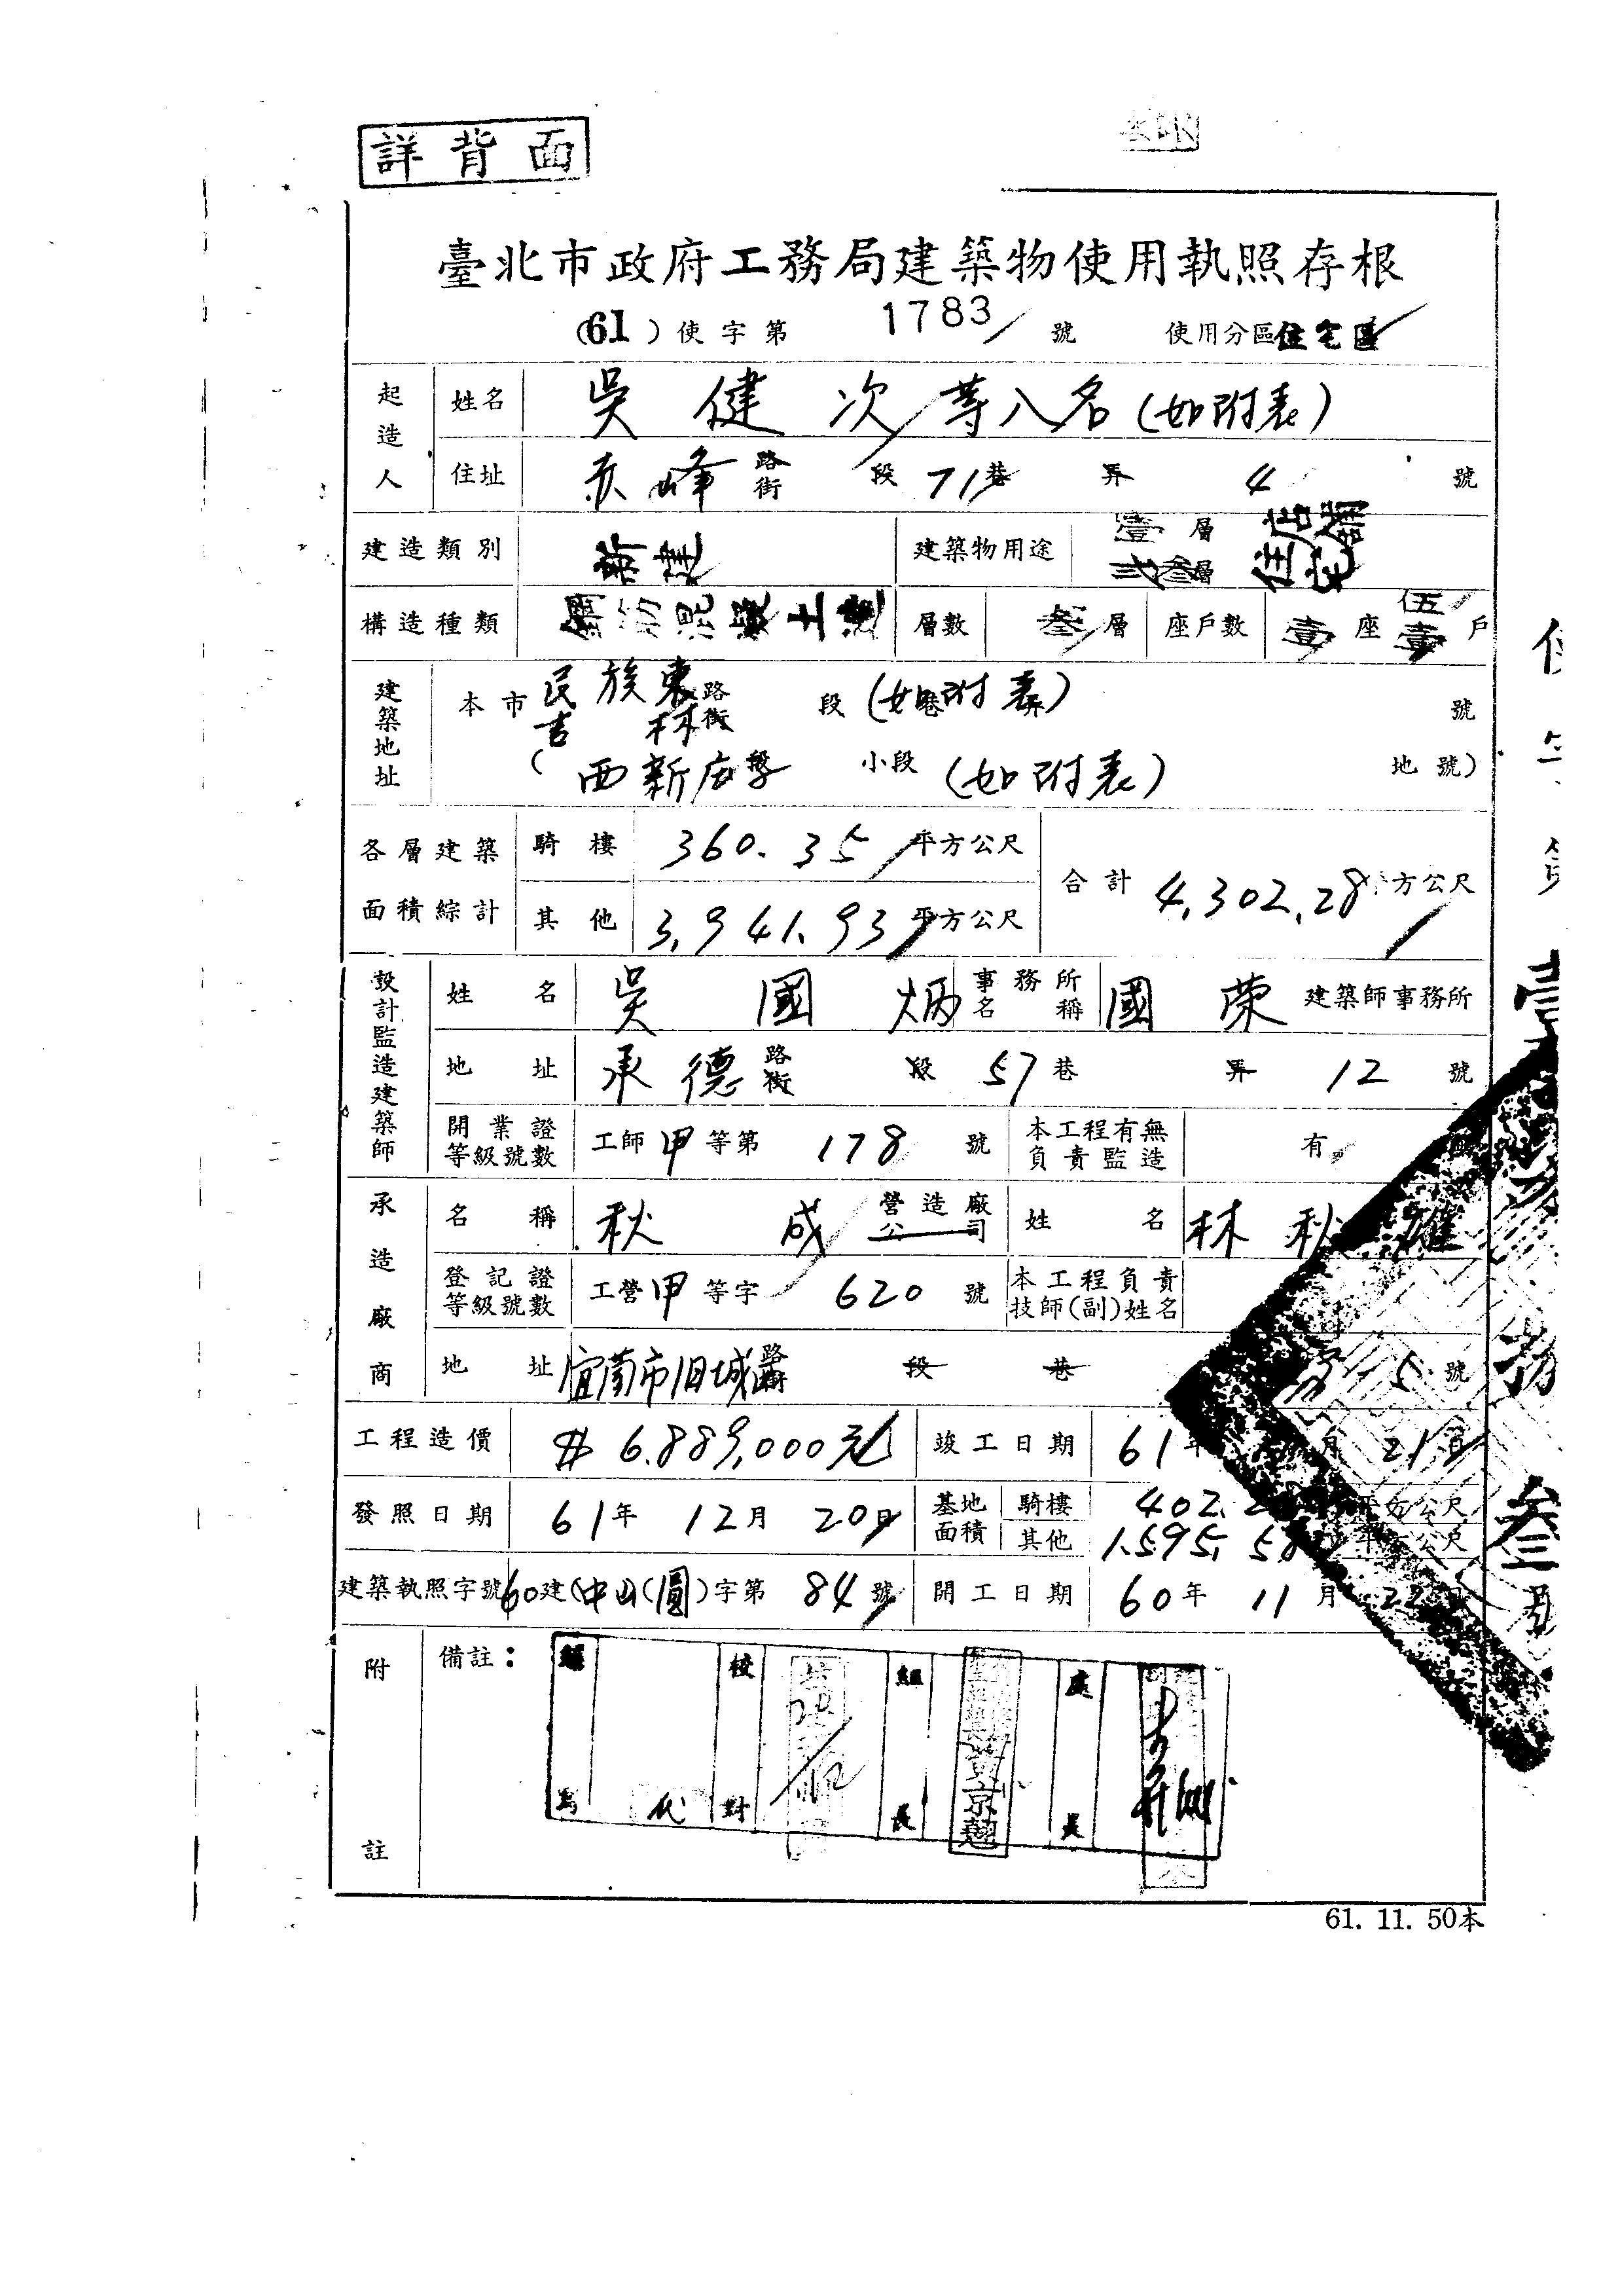 詳背面
臺北市政府工務局建築物使用執照存根
(61)使字第 1783 號 使用分區住宅區
起造人 姓名 吳健次等八名(如附表)
住址 赤峰路街 段 71巷 弄 4 號
建造類別 新建 建築物用途 壹層 店舖 貳叁層 住宅
構造種類 鋼筋混凝土造 層數 叁層 座戶數 壹座 伍壹戶
建築地址 本市 民族東 吉林 路街 段 (如附表) 號
( 西新庄子段 小段 (如附表) 地號)
各層建築面積綜計 騎樓 360.35平方公尺 合計 4,302.28平方公尺
其他 3,941.93平方公尺
設計監造建築師 姓名 吳國炳 事務所名稱 國荣 建築師事務所
地址 承德路街 段 57巷 弄 12 號
開業證等級號數 工師甲等第 178 號 本工程有無負責監造 有
承造廠商 名稱 秋成 營造廠公司 姓名 林秋雄
登記證等級號數 工營甲等字 620 號 本工程負責技師(副)姓名
地址 宜蘭市旧城路 段 巷 5 號
工程造價 $6,889,000元 竣工日期 61年 月 21日
發照日期 61年 12月 20日 基地面積 騎樓 402.2 平方公尺
其他 1,595.58 平方公尺
建築執照字號 60建(中山)(圓)字第 84號 開工日期 60年 11月 22
附註 備註：
繕寫 校對 組長 處長
代 20/12 黃京
61. 11. 50本